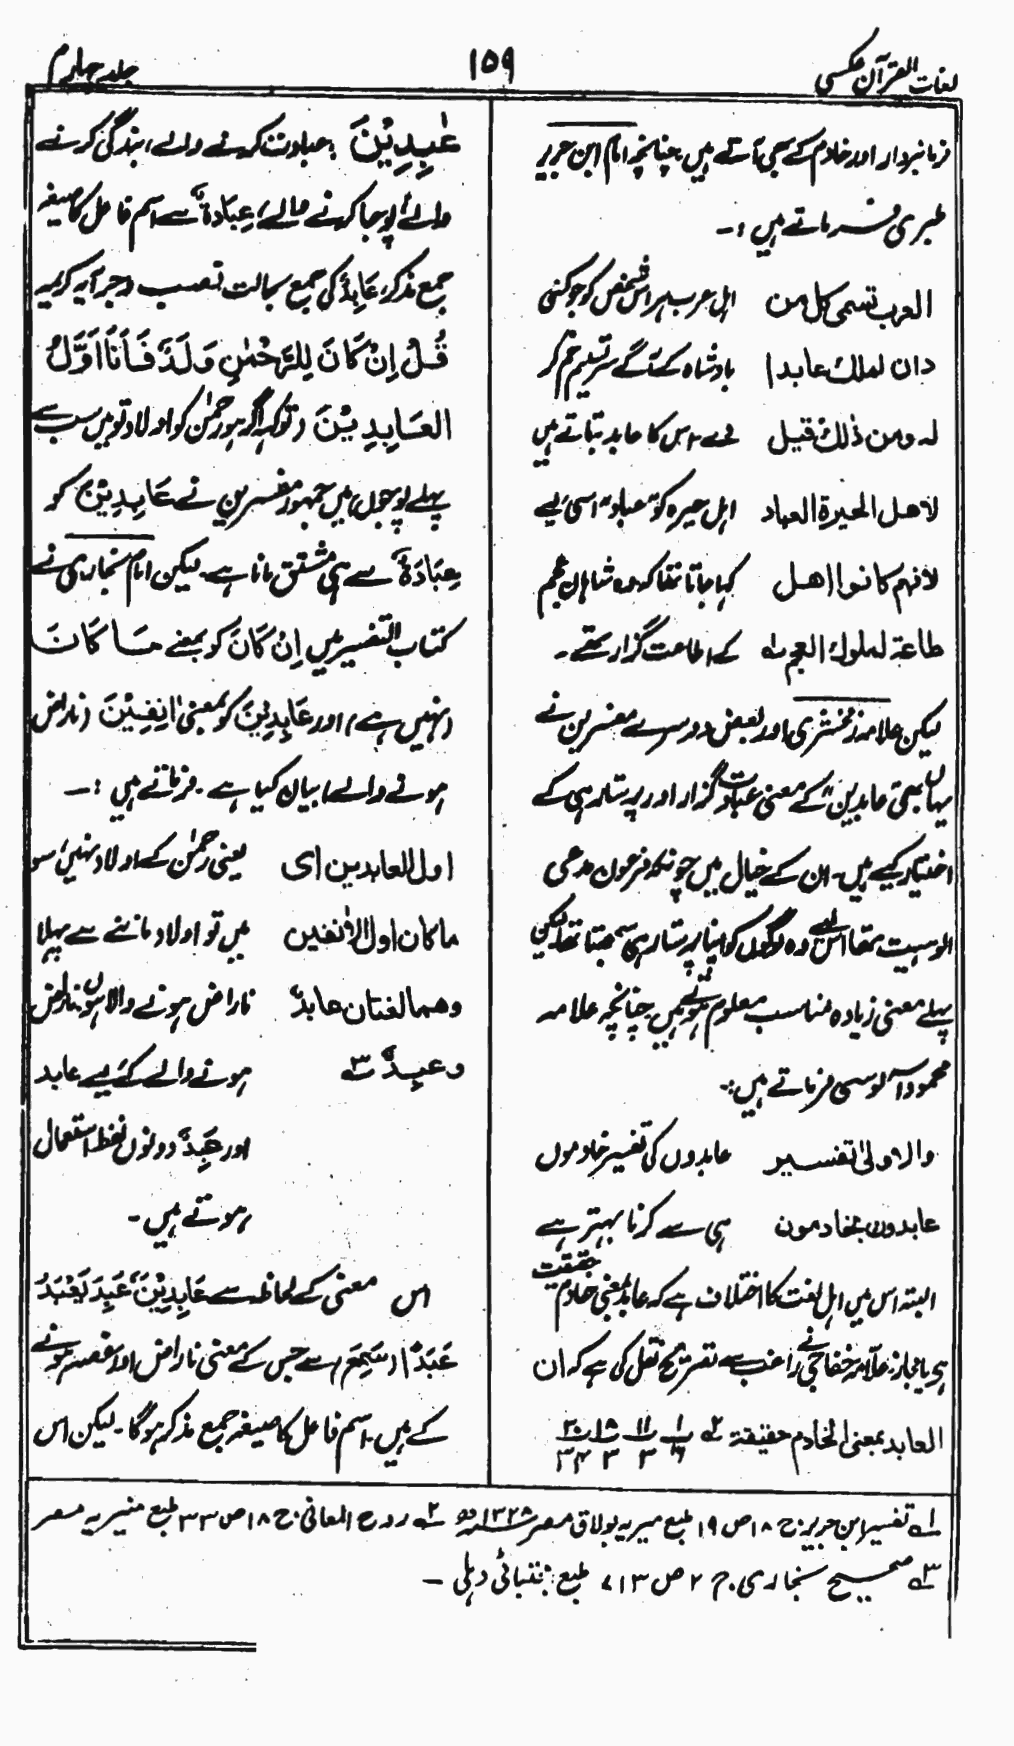 لغات القرآن عکسی
۱۵۹
جلد چہارم
فرمانبردار اور خادم کے بھی آتے ہیں، چنانچہ امام ابن جریر
طبری فرماتے ہیں :۔
العرب تسمی کل من اہل عرب ہر اس شخص کو جو کسی
دان لملک عابدا بادشاہ کے آگے سر تسلیم خم کر
لہ ومن ذٰلک قیل دے، اس کا عابد بتاتے ہیں
لاھل الحیرۃ العباد اہل حیرہ کو "عباد" اسی لیے
لانہم کانوا اھل کہا جاتا تھا کہ وہ شاہان عجم
طاعۃ لملوک العجم لہ کے اطاعت گزار تھے۔
لیکن علامہ زمخشری اور بعض دوسرے مفسرین نے
یہاں بھی عابدین کے معنی عبادت گزار اور پرستار ہی کے
اختیار کیے ہیں۔ ان کے خیال میں چونکہ فرعون مدعی
الوہیت تھا اس لیے وہ لوگوں کو اپنا پرستار ہی سمجھتا تھا لیکن
پہلے معنی زیادہ مناسب معلوم ہوتے ہیں چنانچہ علامہ
محمود آلوسی فرماتے ہیں:۔
والاولیٰ تفسیر عابدوں کی تفسیر خادموں
عابدون بخادمون ہی سے کرنا بہتر ہے
البتہ اس میں اہل لغت کا اختلاف ہے کہ عابد بمعنی خادم حقیقت
ہے یا مجاز۔ علامہ خفاجی نے راغب سے تصریح نقل کی ہے کہ ان
العابد بمعنی الخادم حقیقۃ ۲؎ ۱/۱۶ ۱۱/۳ ۱۸/۳ ۲۰/۳۴
عٰبِدِیْنَ ، عبادت کرنے والے، بندگی کرنے
والے، پوجا کرنے والے، عِبَادَۃٌ سے اسم فاعل کا صیغہ
جمع مذکر، عَابِدٌ کی جمع بحالت نصب و جر آیہ کریمہ
قُلْ اِنْ كَانَ لِلرَّحْمٰنِ وَلَدٌ فَاَنَا اَوَّلُ
العَابِدِیْنَ (تو کہہ اگر ہو رحمٰن کو اولاد تو میں سب سے
پہلے پوجوں) میں جمہور مفسرین نے عَابِدِیْنَ کو
عِبَادَۃٌ سے ہی مشتق مانا ہے۔ لیکن امام بخاری نے
کتاب التفسیر میں اِنْ كَانَ کو بمعنے مَا كَانَ
(نہیں ہے) اور عَابِدِیْنَ کو بمعنیٰ اٰنِفِیْنَ (ناراض
ہونے والے) بیان کیا ہے۔ فرماتے ہیں :۔
اول العابدین ای یعنی رحمٰن کے اولاد نہیں، سو
ماکان اول الاٰنفین میں تو اولاد ماننے سے پہلا
وھما لغتان عابدٌ ناراض ہونے والا ہوں، ناراض
وعبِدٌ ۳؎ ہونے والے کے لیے عابد
اور عَبِدٌ دونوں لفظ استعمال
ہوتے ہیں۔
اس معنی کے لحاظ سے عَابِدِیْنَ، عَبِدَ یَعْبَدُ
عَبَدٌ (از سَمِعَ) سے جس کے معنی ناراض اور غصہ ہونے
کے ہیں۔ اسم فاعل کا صیغہ جمع مذکر ہوگا۔ لیکن اس
۱؎ تفسیر ابن جریر: ج ۱۸ ص ۱۹ طبع میریہ بولاق مصر ۱۳۲۸ھ ۲؎ روح المعانی: ج ۱۸ ص ۳۳ طبع منیریہ مصر
۳؎ صحیح بخاری۔ ج ۲ ص ۷۱۳، طبع مجتبائی دہلی ۔